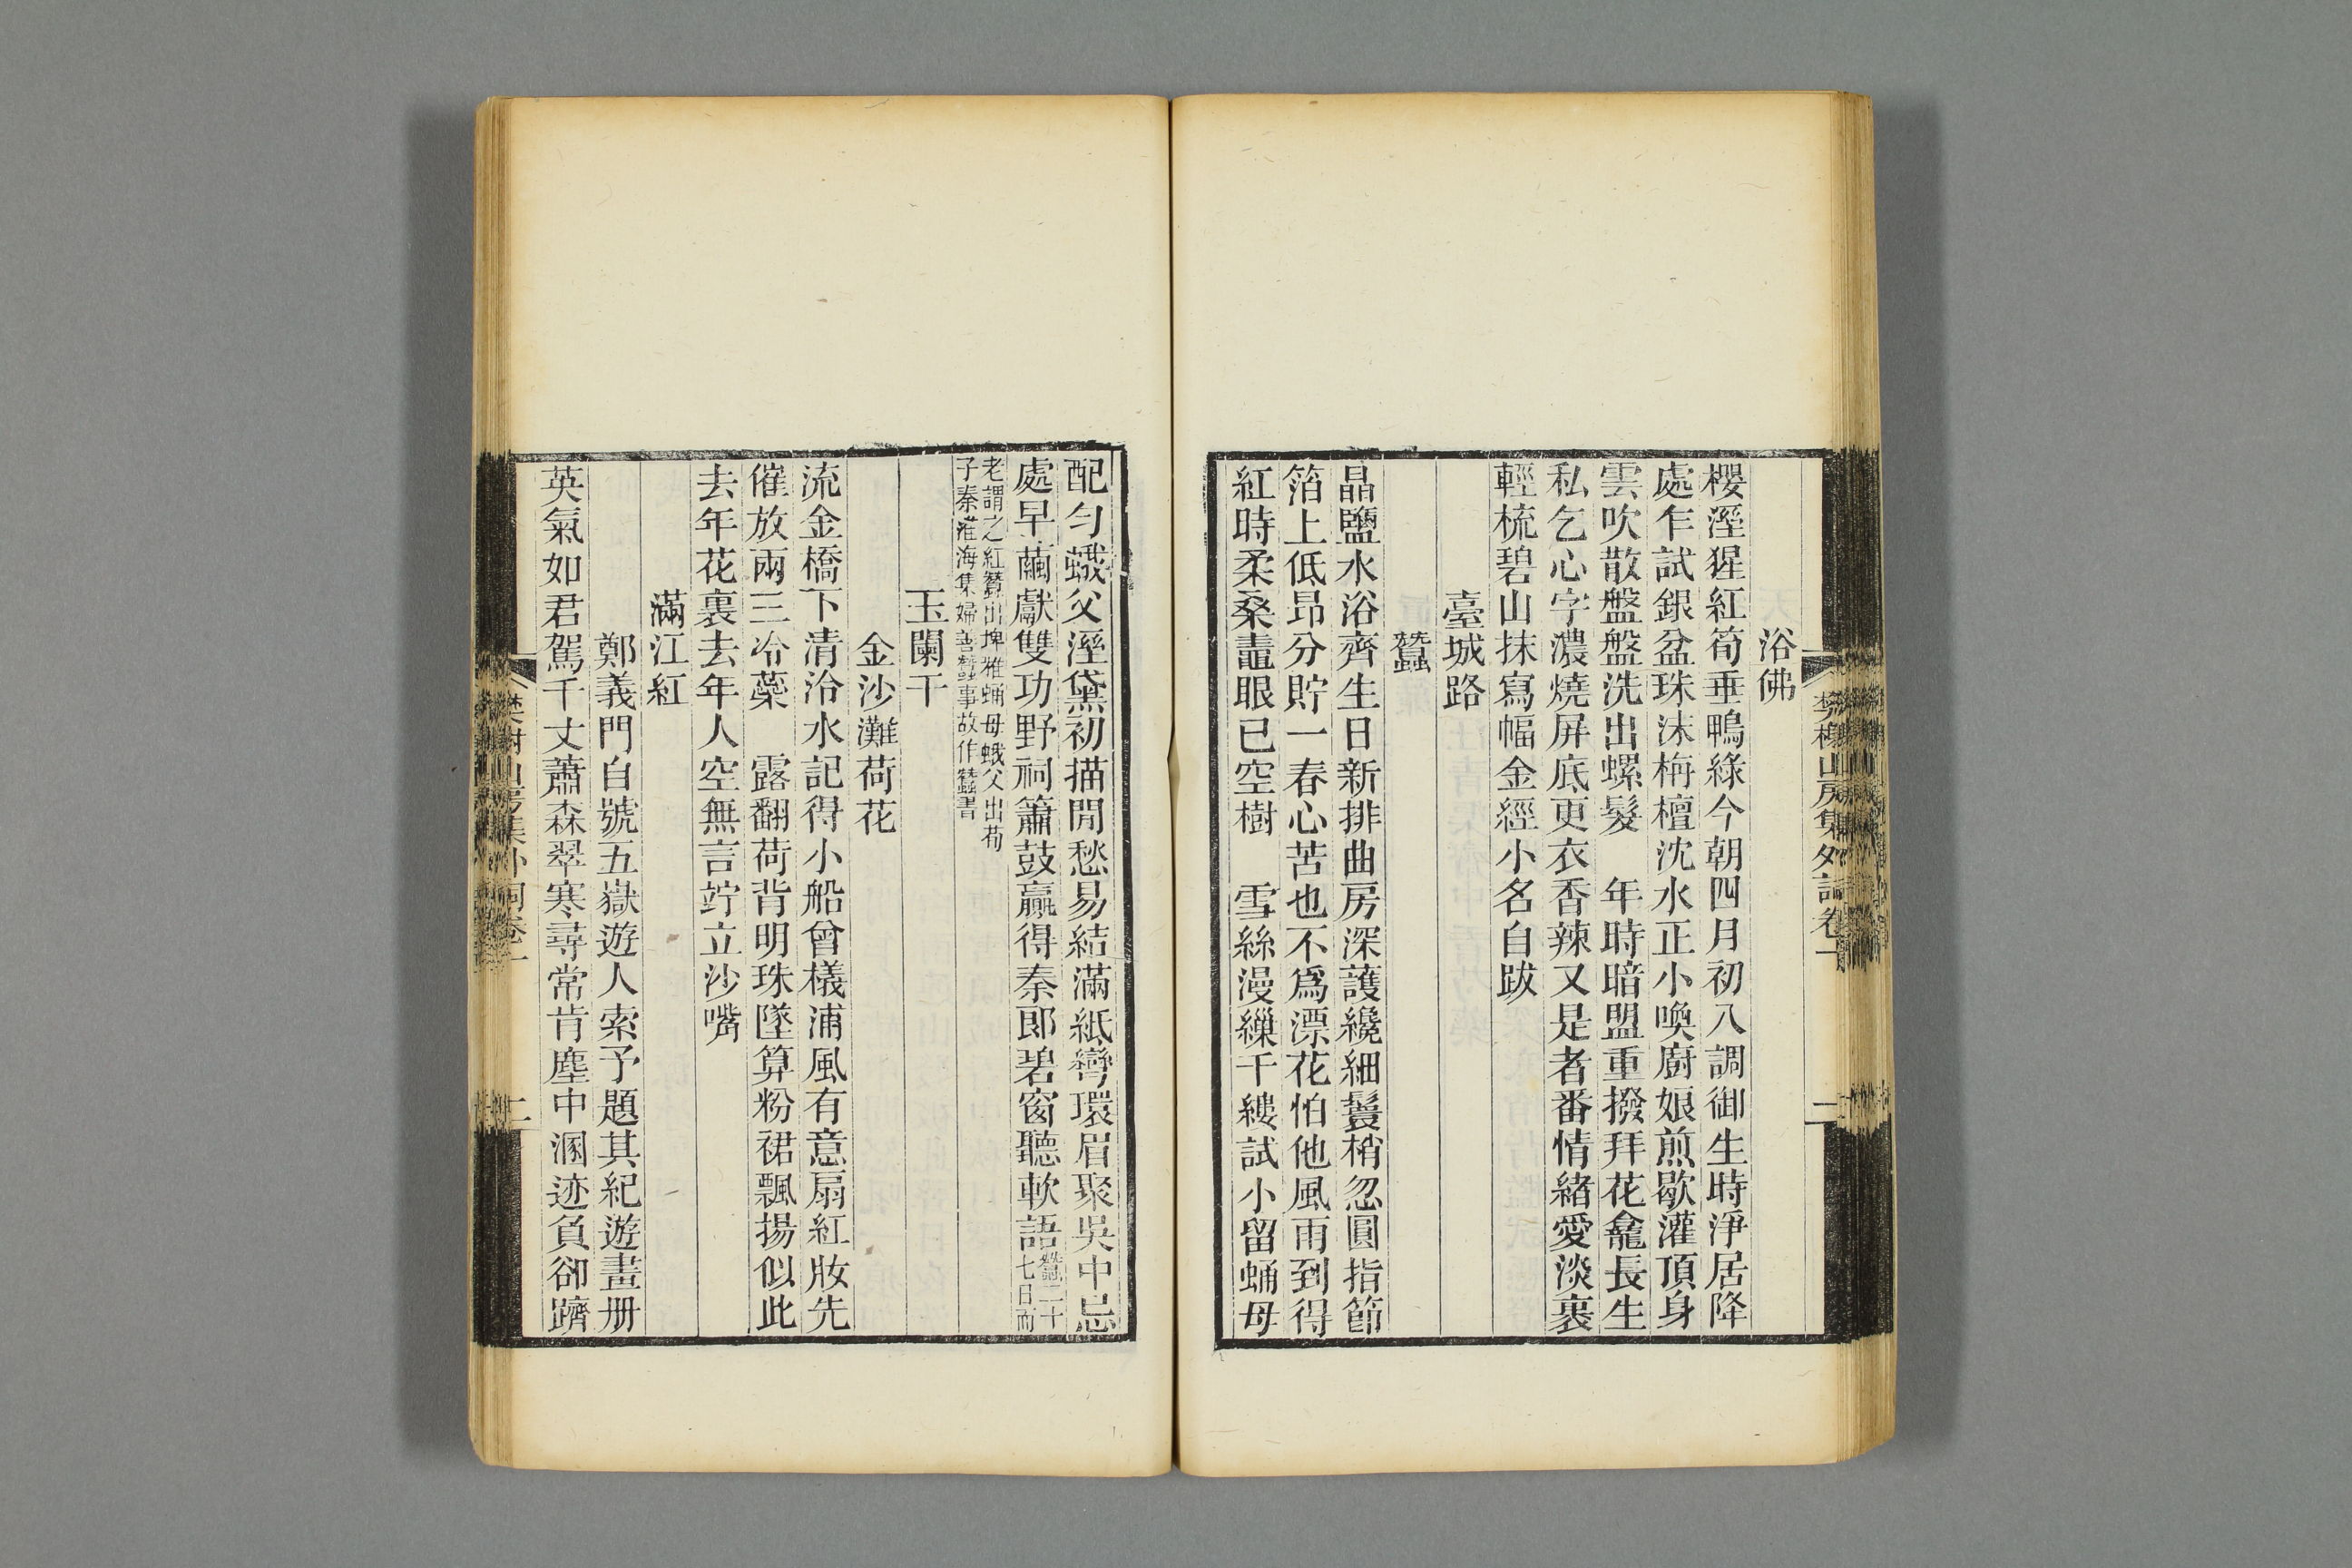 浴佛
櫻溼猩紅筍垂鴨綠今朝四月初八調御生時淨居降
處乍試銀盆珠沫栴檀沈水正小喚廚娘煎歇灌頂身
雲吹散盤盤洗出螺髮　年時暗盟重撥拜花龕長生
私乞心字濃燒屏底更衣香辣又是者番情緒愛淡裹
輕梳碧山抹寫幅金經小名自跋
臺城路
蠶
晶鹽水浴齊生日新排曲房深護纔細鬟梢忽圓指節
箔上低昂分貯一春心苦也不爲漂花怕他風雨到得
紅時柔桑矗眼已空樹　雪絲漫繅千縷試小留蛹母
配勻蛾父溼黛初描閒愁易結滿紙彎環眉聚吳中忌
處早繭獻雙功野祠簫鼓贏得秦郎碧窗聽軟語蠶二十七日而
老謂之紅蠶出埤雅蛹母蛾父出荀
子秦淮海集婦善蠶事故作蠶書
玉闌干
金沙灘荷花
流金橋下清泠水記得小船曾檥浦風有意扇紅妝先
催放兩三冷蘂　露翻荷背明珠墜算粉裙飄揚似此
去年花裏去年人空無言竚立沙嘴
滿江紅
鄭義門自號五嶽遊人索予題其紀遊畫册
英氣如君駕千丈蕭森翠寒尋常肯塵中溷迹負卻躋